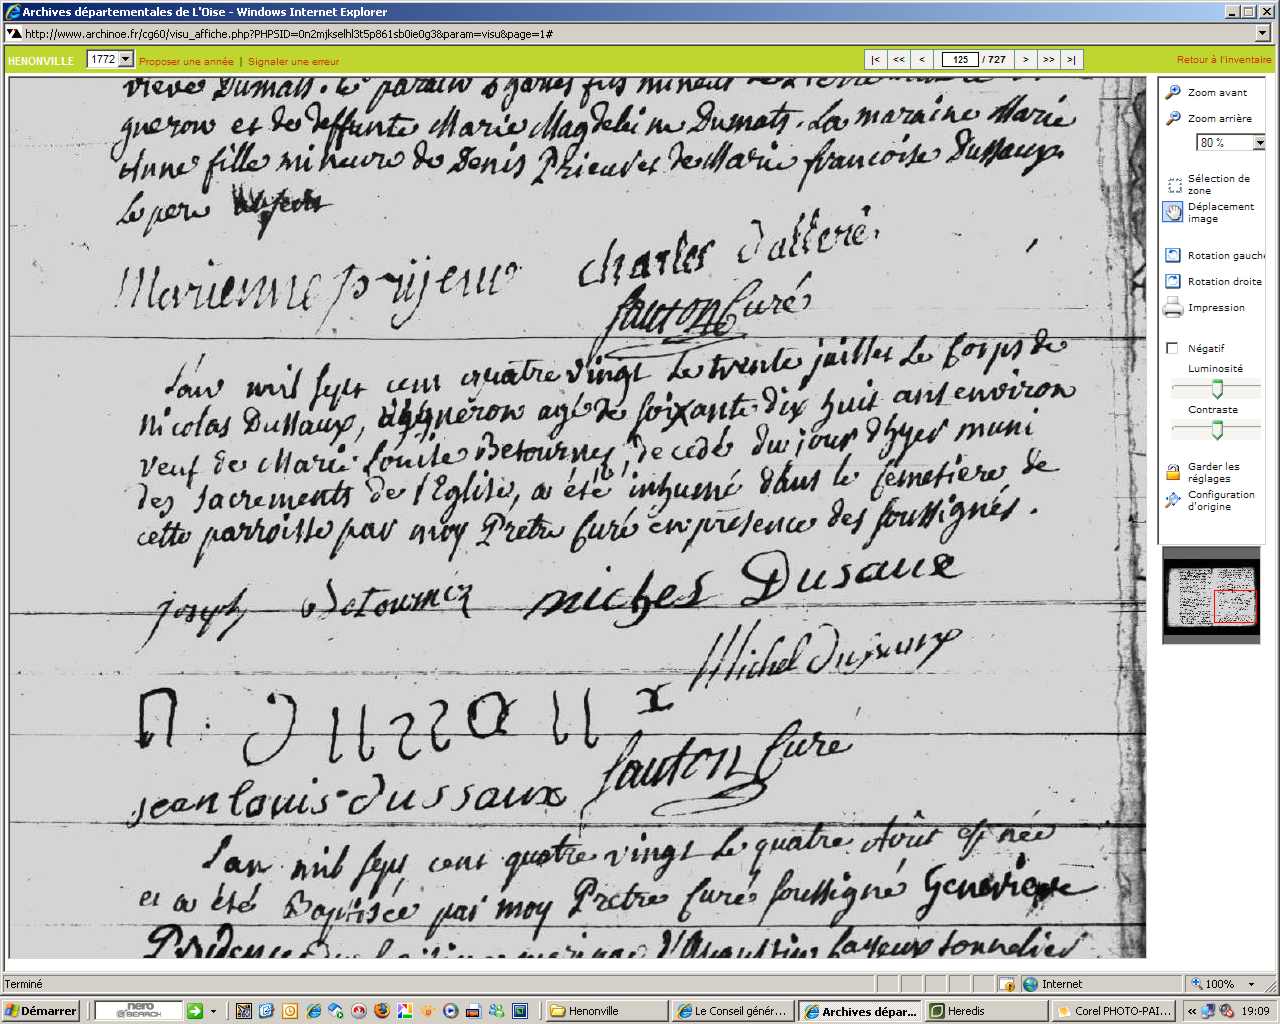 Archives départementales de L'Oise - Windows Internet Explorer
http://www.archinoe.fr/cg60/visu_affiche.php?PHPSID=0n2mjkselhl3t5p861sb0ie0g3&param=visu&page=1#
HENONVILLE 1772 Proposer une année | Signaler une erreur |< << < 125 / 727 > >> >| Retour à l'inventaire
Zoom avant
Zoom arrière
80 %
Sélection de
zone
Déplacement
image
Rotation gauche
Rotation droite
Impression
Négatif
Luminosité
Contraste
Garder les
réglages
Configuration
d'origine
vieve Dumats. le parain Charles fils mineur
gneron et de deffunte Marie Magdeleine Dumats. La maraine Marie
Anne fille mineure de Denis Prieur et de Marie francoise Dussaux
Le pere
Marienne prijeur charles dallere
fauton Curé
L'an mil sept cent quatre vingt le trente juillet le Corps de
Nicolas Dussaux, vigneron agé de soixante dix huit ans environ
veuf de Marie Louise Betourney, decedé du jour d'hyer muni
des sacrements de l'Eglise, a été inhumé dans le Cemetiere de
cette parroisse par moy Pretre Curé en presence des soussignés.
joseph Betourner niches Dusaux
Michel dussaux
n. dussaux
jean louis dussaux fauton Curé
L'an mil sept cent quatre vingt le quatre Août est née
et a été Baptisée par moy Pretre Curé soussigné Genevieve
Prudence mariage d'Augustin tonnelier
Terminé Internet 100%
Démarrer nero SEARCH Henonville Le Conseil génér... Archives dépar... Heredis Corel PHOTO-PAI... « 19:09